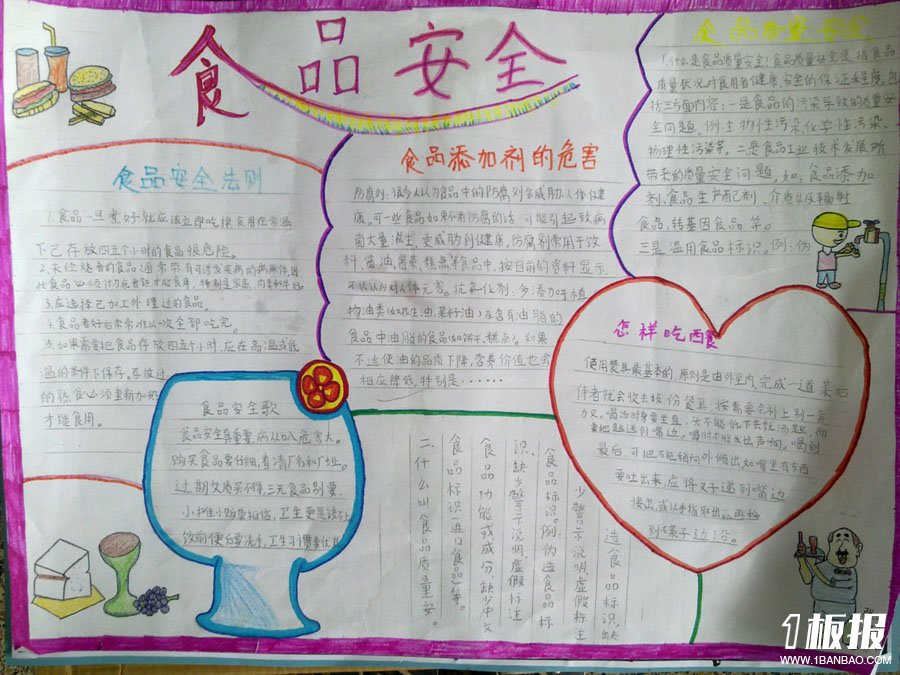 食品安全
食品安全法则
1.食品一旦煮好就应该立即吃掉.食用在常温
下已存放四五个小时的食品很危险。
3.应选择已加工处理过的食品。
4.食品煮好后常常难以一次全部吃完。
5.如果需要把食品存放四五个小时,应在高温或低
温的条件下保存。存放过
的熟食必须重新加热
才能食用。
食品安全歌
食品安全最重要,病从口入危害大。
购买食品要仔细,看清厂名和厂址。
过期变质买不得,三无食品别要,
小摊小贩莫相信,卫生更是谈不上
饭前便后要洗手,卫生习惯要
食品添加剂的危害
防腐剂:很多人认为食品中的防腐剂会威胁人体健
康。可一些食品如果不用防腐的话,可能引起致病
菌大量滋生,更威胁到健康。防腐剂常用于饮
料、酱油、酱菜、糕点等食品中,按目前的资料显示,
可以认为对人体无害。抗氧化剂:多添加于植
物油类(如花生油、菜籽油)及含有油脂的
食品中油脂的食品(如饼干、糕点)。如果
不适使油的品质下降,营养价值也会
相应降低,特别是······
食品质量安全
1.什么是食品质量安全?食品质量安全是指食品
质量状况对食用者健康、安全的保证程度。包
括三方面内容:一是食品的污染导致的质量安
全问题,例:生物性污染、化学性污染、
物理性污染等。二是食品工业技术发展所
带来的质量安全问题,如:食品添加
剂、食品生产配剂、介质以及辐射
食品、转基因食品等。
三是滥用食品标识。例:伪
造食品标识、缺
少警示说明、虚假标注
食品标识。例:伪造食品标
识、缺少警示说明、虚假标注
食品功能或成分、缺少中文
食品标识(进口食品)等。
二、什么叫食品质量安
怎样吃西餐
使用餐具最基本的原则是由外至内,完成一道菜后
侍者就会收去该份餐具,按需要会补上另一套
刀叉。喝汤时身要坐直,头不能低下去就汤匙,而
要把匙送到嘴边。喝时不能发出声响。喝到
最后,可把碗稍向外倾出,如嘴里有东西
要吐出来,应将叉子递到嘴边
接出,或以手指取出,再移
到碟子边沿。
1板报
WWW.1BANBAO.COM